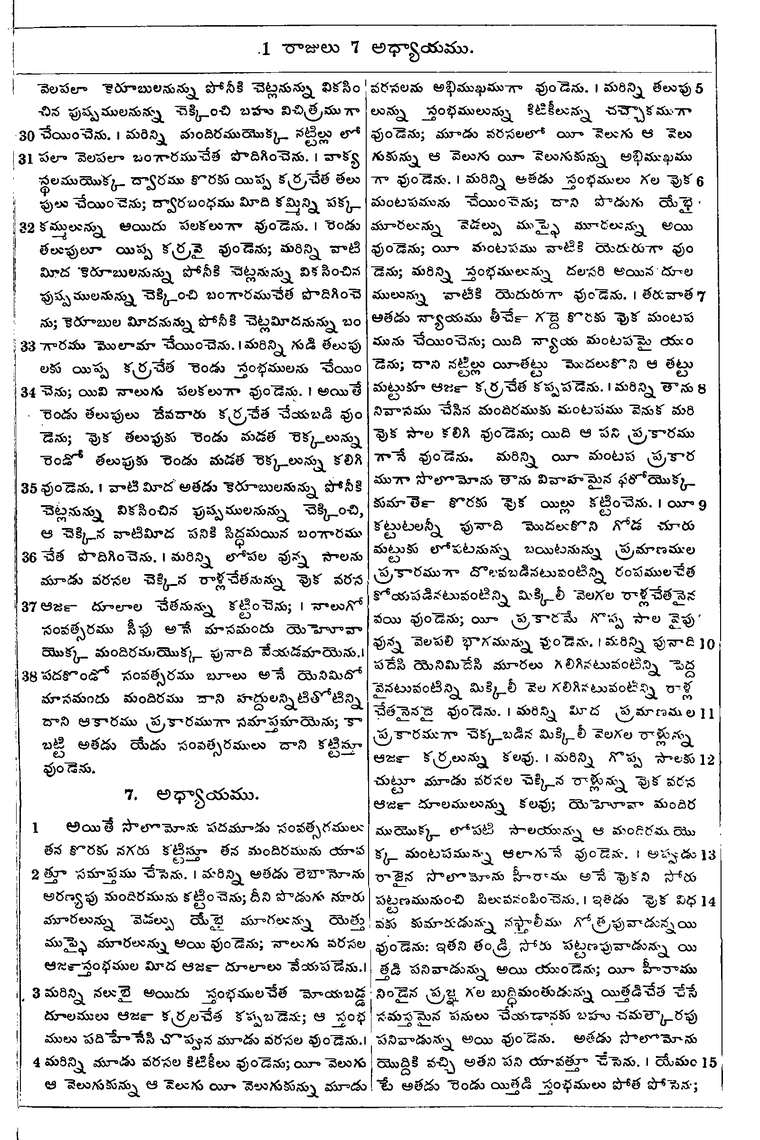 1 రాజులు 7 అధ్యాయము.
వెలపలా కెరూబులనున్ను పోనీకి చెట్లనున్ను వికసిం
చిన పుష్పములనున్ను చెక్కించి బహు విచిత్రముగా
30 చేయించెను. । మరిన్ని మందిరముయొక్క నట్టిల్లు లో
31 పలా వెలపలా బంగారముచేత పొదిగించెను. । వాక్య
స్థలముయొక్క ద్వారము కొరకు యిప్ప కర్రచేత తలు
పులు చేయించెను; ద్వారబంధము మీది కమ్మిన్ని పక్క
32 కమ్ములున్ను అయిదు పలకలుగా వుండెను. । రెండు
తలుపులూ యిప్ప కర్రవై వుండెను; మరిన్ని వాటి
మీద కెరూబులనున్ను పోనీకి చెట్లనున్ను వికసించిన
పుష్పములనున్ను చెక్కించి బంగారముచేత పొదిగించె
ను; కెరూబుల మీదనున్ను పోనీకి చెట్లమీదనున్ను బం
33 గారము మొలామా చేయించెను. । మరిన్ని గుడి తలుపు
లకు యిప్ప కర్రచేత రెండు స్తంభములను చేయిం
34 చెను; యివి నాలుగు పలకలుగా వుండెను. । అయితే
రెండు తలుపులు దేవదారు కర్రచేత చేయబడి వుం
డెను; వొక తలుపుకు రెండు మడత రెక్కలున్ను
రెండో తలుపుకు రెండు మడత రెక్కలున్ను కలిగి
35 వుండెను. । వాటి మీద అతడు కెరూబులనున్ను పోనీకి
చెట్లనున్ను వికసించిన పుష్పములనున్ను చెక్కించి,
ఆ చెక్కిన వాటిమీద పనికి సిద్ధమయిన బంగారము
36 చేత పొదిగించెను. । మరిన్ని లోపల వున్న సాలను
మూడు వరసల చెక్కిన రాళ్లచేతనున్ను వొక వరస
37 ఆర్జ దూలాల చేతనున్ను కట్టించెను; । నాలుగో
సంవత్సరము సీఫు అనే మాసమందు యెహోవా
యొక్క మందిరముయొక్క పునాది వేయడమాయెను.।
38 పదకొండో సంవత్సరము బూలు అనే యెనిమిదో
మాసమందు మందిరము దాని హద్దులన్నిటితోటిన్ని
దాని ఆకారము ప్రకారముగా సమాప్తమాయెను; కా
బట్టి అతడు యేడు సంవత్సరములు దాని కట్టిస్తూ
వుండెను.
7. అధ్యాయము.
1 అయితే సొలొమోను పదమూడు సంవత్సరములు
తన కొరకు నగరు కట్టిస్తూ తన మందిరమును యావ
2 త్తూ సమాప్తము చేసెను. । మరిన్ని అతడు లెబానోను
అరణ్యపు మందిరమును కట్టించెను; దీని పొడుగు నూరు
మూరలున్ను వెడల్పు యేభై మూరలున్ను యెత్తు
ముప్ఫై మూరలున్ను అయి వుండెను; నాలుగు వరసల
ఆర్జస్తంభముల మీద ఆర్జ దూలాలు వేయపడెను.।
3 మరిన్ని నలుభై అయిదు స్తంభములచేత మోయబడ్డ
దూలములు ఆర్జ కర్రలచేత కప్పబడెను; ఆ స్తంభ
ములు పదిహేనేసి చొప్పున మూడు వరసల వుండెను.।
4 మరిన్ని మూడు వరసల కిటికీలు వుండెను; యీ వెలుగు
ఆ వెలుగుకున్ను ఆ వెలుగు యీ వెలుగుకున్ను మూడు
వరసలను అభిముఖముగా వుండెను. । మరిన్ని తలుపు 5
లున్ను స్తంభములున్ను కిటికీలున్ను చచ్చౌకముగా
వుండెను; మూడు వరసలలో యీ వెలుగు ఆ వెలు
గుకున్ను ఆ వెలుగు యీ వెలుగుకున్ను అభిముఖము
గా వుండెను. । మరిన్ని అతడు స్తంభములు గల వొక 6
మంటపమును చేయించెను; దాని పొడుగు యేభై
మూరలున్ను వెడల్పు ముప్ఫై మూరలున్ను అయి
వుండెను; యీ మంటపము వాటికి యెదురుగా వుం
డెను; మరిన్ని స్తంభములున్ను దలసరి అయిన దూల
ములున్ను వాటికి యెదురుగా వుండెను. । తరువాత 7
అతడు న్యాయము తీర్చే గద్దె కొరకు వొక మంటప
మును చేయించెను; యిది న్యాయ మంటపమై యుం
డెను; దాని నట్టిల్లు యీతట్టు మొదలుకొని ఆ తట్టు
మట్టుకూ ఆర్జ కర్రచేత కప్పపడెను. । మరిన్ని తాను 8
నివాసము చేసిన మందిరముకు మంటపము వెనుక మరి
వొక సాల కలిగి వుండెను; యిది ఆ పని ప్రకారము
గానే వుండెను. మరిన్ని యీ మంటప ప్రకార
ముగా సొలొమోను తాను వివాహమైన ఫరోయొక్క
కుమార్తె కొరకు వొక యిల్లు కట్టించెను. । యీ 9
కట్టుటలన్నీ పునాది మొదలుకొని గోడ చూరు
మట్టుకు లోపటనున్ను బయిటనున్ను ప్రమాణముల
ప్రకారముగా దొలవబడినటువంటిన్ని రంపములచేత
కోయపడినటువంటిన్ని మిక్కిలీ వెలగల రాళ్లచేతవైన
వయి వుండెను; యీ ప్రకారమే గొప్ప సాల వైపు
వున్న వెలపలి భాగమున్ను వుండెను. । మరిన్ని పునాది 10
పదేసి యెనిమిదేసి మూరలు గలిగినటువంటిన్ని పెద్ద
వైనటువంటిన్ని మిక్కిలీ వెల గలిగినటువంటిన్ని రాళ్ల
చేతవైనదై వుండెను. । మరిన్ని మీద ప్రమాణముల 11
ప్రకారముగా చెక్కబడిన మిక్కిలీ వెలగల రాళ్లున్ను
ఆర్జ కర్రలున్ను కలవు. । మరిన్ని గొప్ప సాలకు 12
చుట్టూ మూడు వరసల చెక్కిన రాళ్లున్ను వొక వరస
ఆర్జ దూలములున్ను కలవు; యెహోవా మందిర
ముయొక్క లోపటి సాలయున్ను ఆ మందిరము యొ
క్క మంటపమున్ను ఆలాగునే వుండెను. । అప్పుడు 13
రాజైన సొలొమోను హీరాము అనే వొకని సోరు
పట్టణమునుంచి పిలువనంపించెను. । ఇతడు వొక విధ 14
వకు కుమారుడున్ను నఫ్తాలీము గోత్రపువాడున్నయి
వుండెను: ఇతని తండ్రి సోరు పట్టణపువాడున్ను యి
త్తడి పనివాడున్ను అయి యుండెను; యీ హీరాము
నిండైన ప్రజ్ఞ గల బుద్ధిమంతుడున్ను యిత్తడిచేత చేసే
సమస్తమైన పనులు చేయడానకు బహు చమత్కారపు
పనివాడున్ను అయి వుండెను. అతడు సొలొమోను
యొద్దికి వచ్చి అతని పని యావత్తూ చేసెను. । యేమం 15
టే అతడు రెండు యిత్తడి స్తంభములు పోత పోసెను;